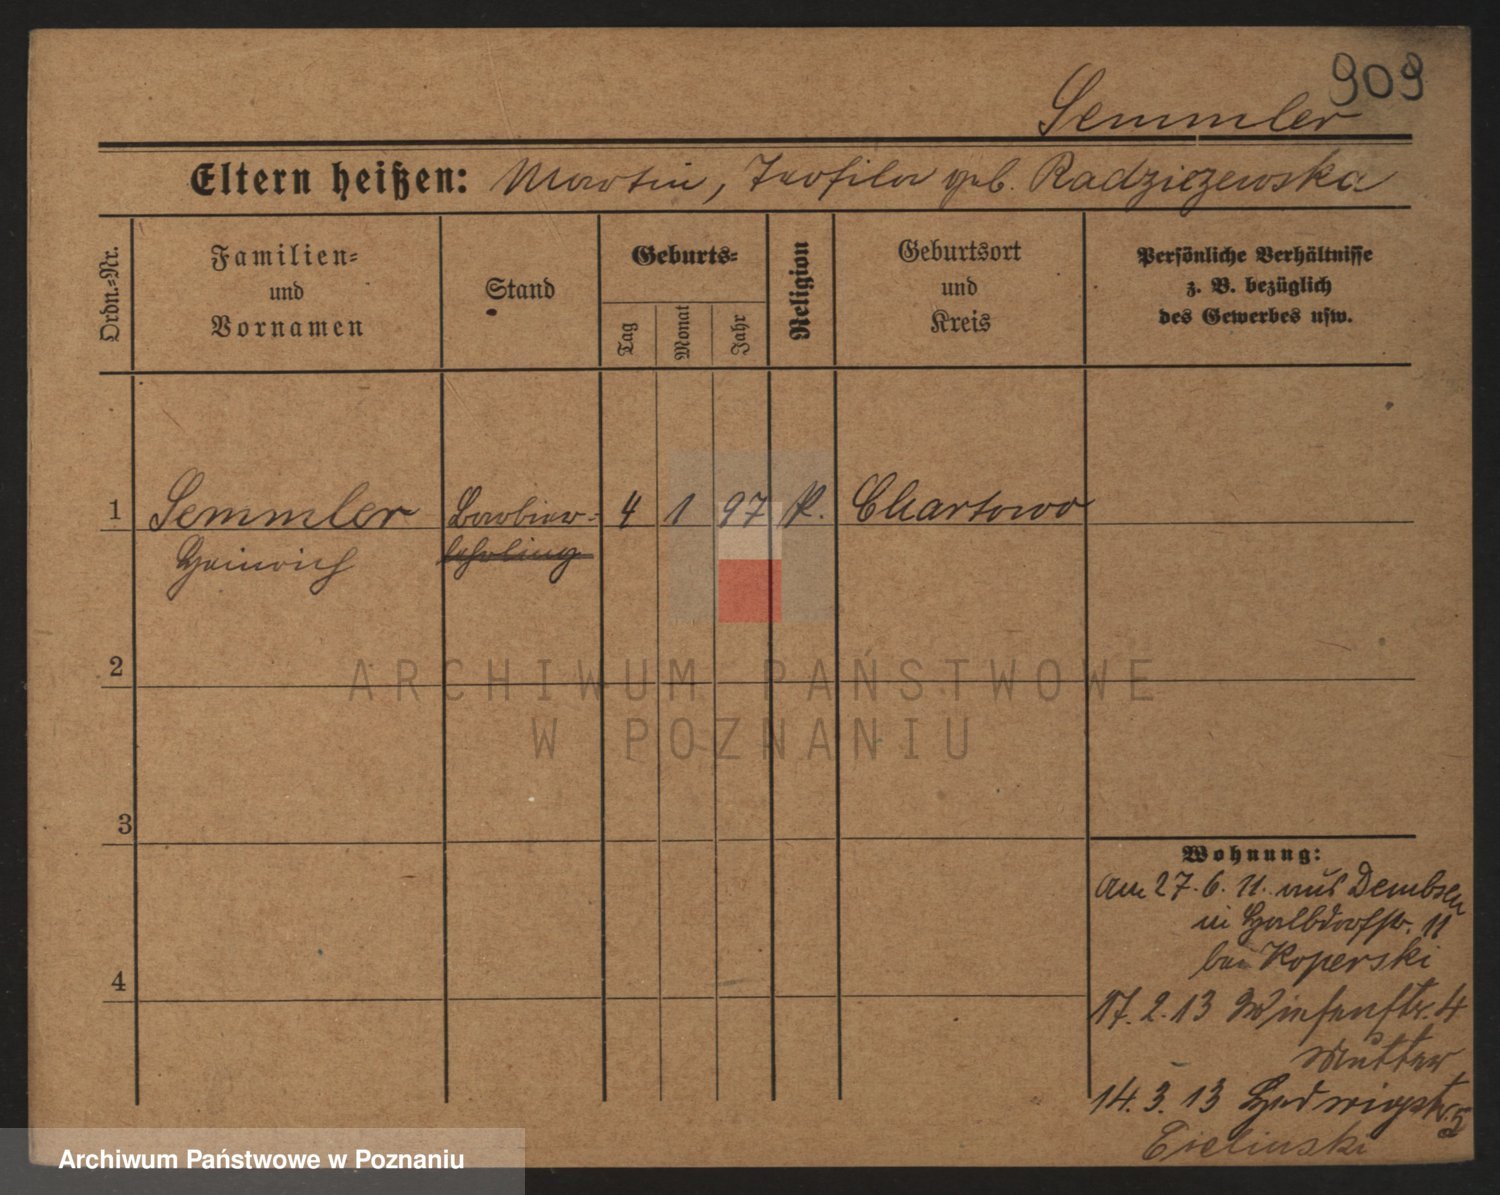 909
Semmler
Eltern heißen: Martin, Teofila geb. Radziejewska
Ordn.-Nr.
Familien-
und
Vornamen
Stand
Geburts-
Tag
Monat
Jahr
Religion
Geburtsort
und
Kreis
Persönliche Verhältnisse
z. B. bezüglich
des Gewerbes usw.
1 Semmler Barbier- 4 1 97 k. Chartowo
Heinrich lehrling
2
ARCHIWUM PAŃSTWOWE
W POZNANIU
3
Wohnung:
Am 27.6.11. aus Dembsen
in Halbdorfstr. 11
bei Koperski
4
17.2.13 Wiesenstr. 4
Mutter
14.3.13 Hedwigstr. 5
Zielinski
Archiwum Państwowe w Poznaniu